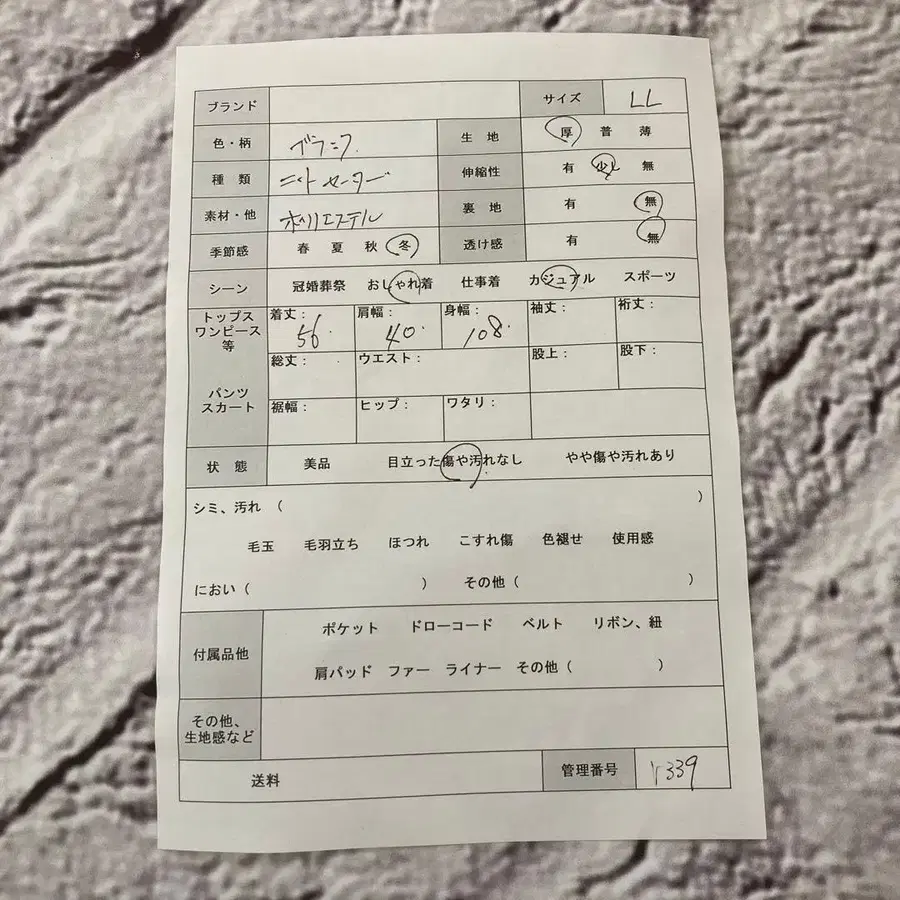 ブランド サイズ LL
色・柄 ブラック. 生 地 厚 普 薄
種 類 ニットセーター 伸縮性 有 少し 無
素材・他 ポリエステル 裏 地 有 無
季節感 春 夏 秋 冬 透け感 有 無
シーン 冠婚葬祭 おしゃれ着 仕事着 カジュアル スポーツ
トップス
ワンピース
等
着丈： 56. 肩幅： 40. 身幅： 108. 袖丈： 裄丈：
総丈： ウエスト： 股上： 股下：
パンツ
スカート
裾幅： ヒップ： ワタリ：
状 態 美品 目立った傷や汚れなし やや傷や汚れあり
シミ、汚れ （ ）
毛玉 毛羽立ち ほつれ こすれ傷 色褪せ 使用感
におい（ ） その他（ ）
付属品他 ポケット ドローコード ベルト リボン、紐
肩パッド ファー ライナー その他（ ）
その他、
生地感など
送料 管理番号 r339